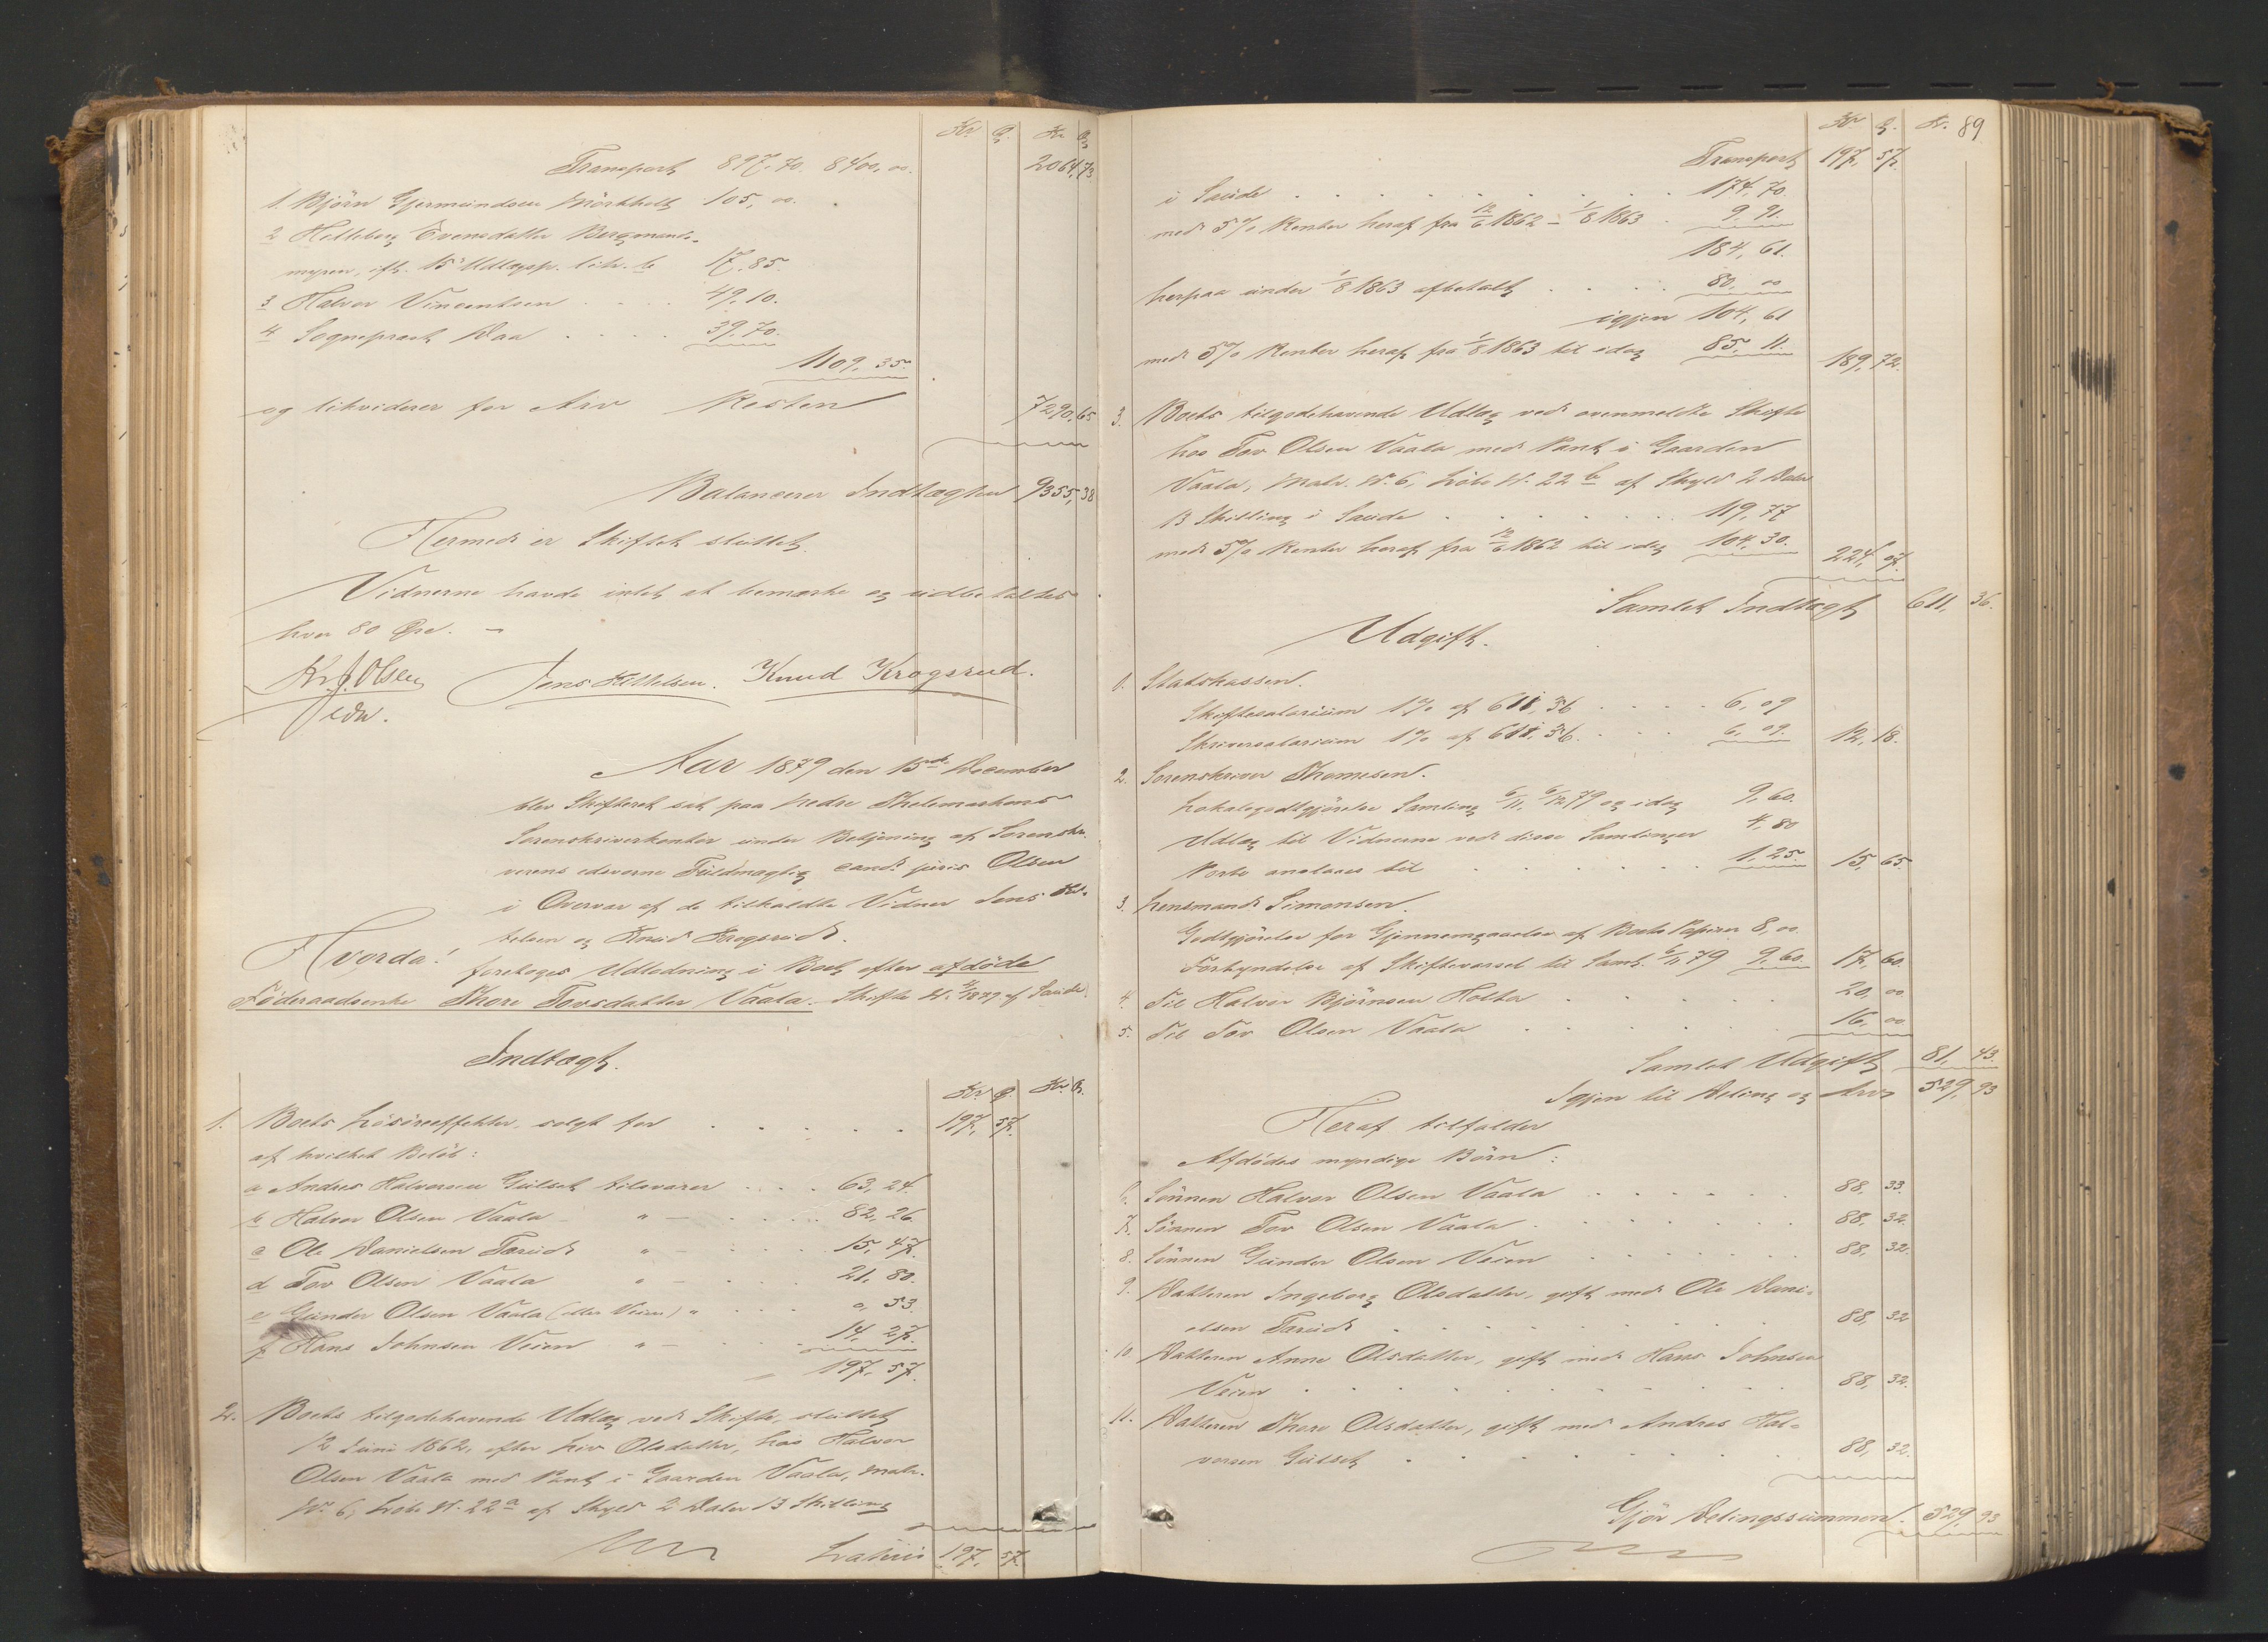 Kr. Ø. Kr. Ø.
Transport 897,70. 8400,00. 2064,73
1. Björn Gjermundsen Mörkholt 105,00.
2 Helleborg Evensdatter Bergmands-
myren, ifl. 15 Udlægsp. litr. b 17,85.
3 Halvor Vincentsen . . . 49,10.
4 Sognepræst Daa . . . . 39,70.
1109,35.
og likviderer for Arv Resten 7290,65
Balancerer Indtægten 9355,38
Hermed er Skiftet sluttet.
Vidnerne havde intet at bemærke og udbetaltes
hver 80 Øre. -
Kr. J. Olsen Jens Kittelsen. Knud Krogsrud.
edsv.
Aar 1879 den 15de December
blev Skifteret sat paa Nedre Thelemarkens
Sorenskriverkontor under Betjening af Sorenskri-
verens edsvorne Fuldmægtig cand. juris Olsen
i Overvær af de tilkaldte Vidner Jens Kit-
telsen og Knud Krogsrud.
Hvorda!
foretoges Udlodning i Boet efter afdöde
Föderaadsenke Thore Torsdatter Vaala. Skifte N. 4/1879 af Saude.
Indtægt.
Kr. Ø. Kr. Ø.
1. Boets Lösöreeffekter, solgt for . . . . . 197,57.
af hvilket Belöb:
a Andres Halvorsen Gulset tilsvarer . . . 63,24.
b Halvor Olsen Vaala " — . . . 82,26.
c Ole Danielsen Tarud " — . . . 15,47.
d Tov Olsen Vaala " — . . . 21,80.
e Gunder Olsen Vaala (eller Veien) " . . . 0,53.
f Hans Johnsen Veien " — . . . 14,27.
197,57.
2. Boets tilgodehavende Udlæg ved Skifte, sluttet
12 Juni 1862, efter Liv Olsdatter, hos Halvor
Olsen Vaala med Pant i Gaarden Vaala, Matr.
N. 6, Löbe N. 22a af Skyld 2 Daler 13 Skilling
Lateris 197,57.
Kr. Ø. Kr. 89
Transport 197,57.
i Saude . . . . . . . . 174,70.
med 5% Renter heraf fra 12/6 1862 – 1/8 1863 . 9,91.
184,61.
herpaa under 1/8 1863 afbetalt . . . . 80,00
igjen 104,61
med 5% Renter heraf fra 1/8 1863 til idag 85,11. 189,72.
3. Boets tilgodehavende Udlæg ved ovenmeldte Skifte
hos Tov Olsen Vaala med Pant i Gaarden
Vaala, Matr. N. 6, Löbe N. 22 b af Skyld 2 Daler
13 Skilling i Saude . . . . . . 119,77
med 5% Renter heraf fra 12/6 1862 til idag 104,30. 224,07.
Samlet Indtægt 611,36.
Udgift.
1. Statskassen.
Skiftesalarium 1% af 611,36 . . . . 6,09
Skriversalarium 1% af 611,36. . . . 6,09. 12,18.
2. Sorenskriver Thomesen.
Lokalegodtgjörelse Samling 6/11, 6/12 79 og idag 9,60.
Udlæg til Vidnerne ved disse Samlinger 4,80
Porto anslaaes til . . . . . . 1,25. 15,65.
3. Lensmand Simonsen.
Godtgjörelse for Gjennemgaaelse af Boets Papirer 8,00.
Forkyndelse af Skiftevarsel til Saml. 6/11 79 9,60. 17,60.
4. Til Halvor Björnsen Holta . . . . 20,00
5. Til Tov Olsen Vaala . . . . . 16,00
Samlet Udgift 81,43.
Igjen til Deling og Arv 529,93
Heraf tilfalder
Afdödes myndige Börn:
6. Sönnen Halvor Olsen Vaala . . . . . 88,33.
7. Sönnen Tov Olsen Vaala . . . . . . 88,32.
8. Sönnen Gunder Olsen Veien . . . . . 88,32.
9. Datteren Ingeborg Olsdatter, gift med Ole Dani-
elsen Tarud . . . . . . . . 88,32
10. Datteren Anne Olsdatter, gift med Hans Johnsen
Veien . . . . . . . . . . 88,32.
11. Datteren Thore Olsdatter, gift med Andres Hal-
vorsen Gulset . . . . . . . . 88,32.
Gjör Delingssummen. 529,93